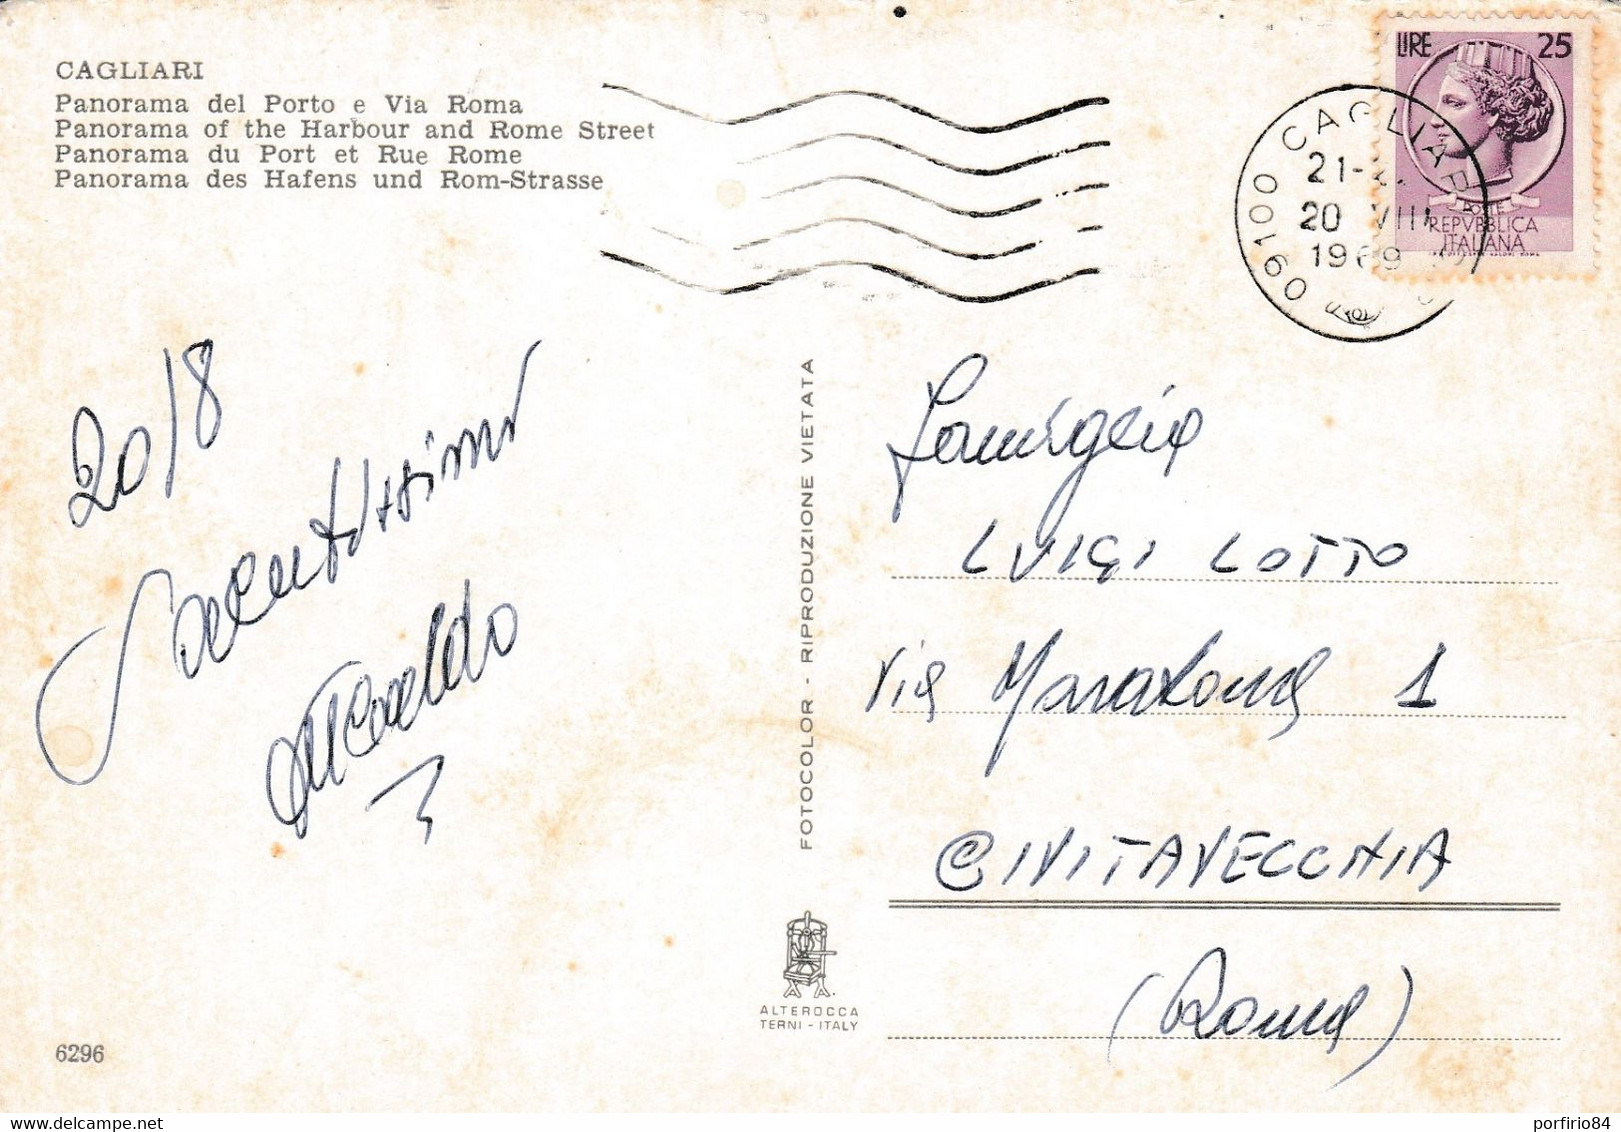 CAGLIARI
Panorama del Porto e Via Roma
Panorama of the Harbour and Rome Street
Panorama du Port et Rue Rome
Panorama des Hafens und Rom-Strasse
LIRE 25
POSTE
REPVBBLICA
ITALIANA
09100 CAGLIARI
21-
20 VIII
1969
20/8
FOTOCOLOR - RIPRODUZIONE VIETATA
Famiglia
LUIGI LOTTO
Via Maratona 1
CIVITAVECCHIA
(Roma)
ALTEROCCA
TERNI - ITALY
6296
porfirio84